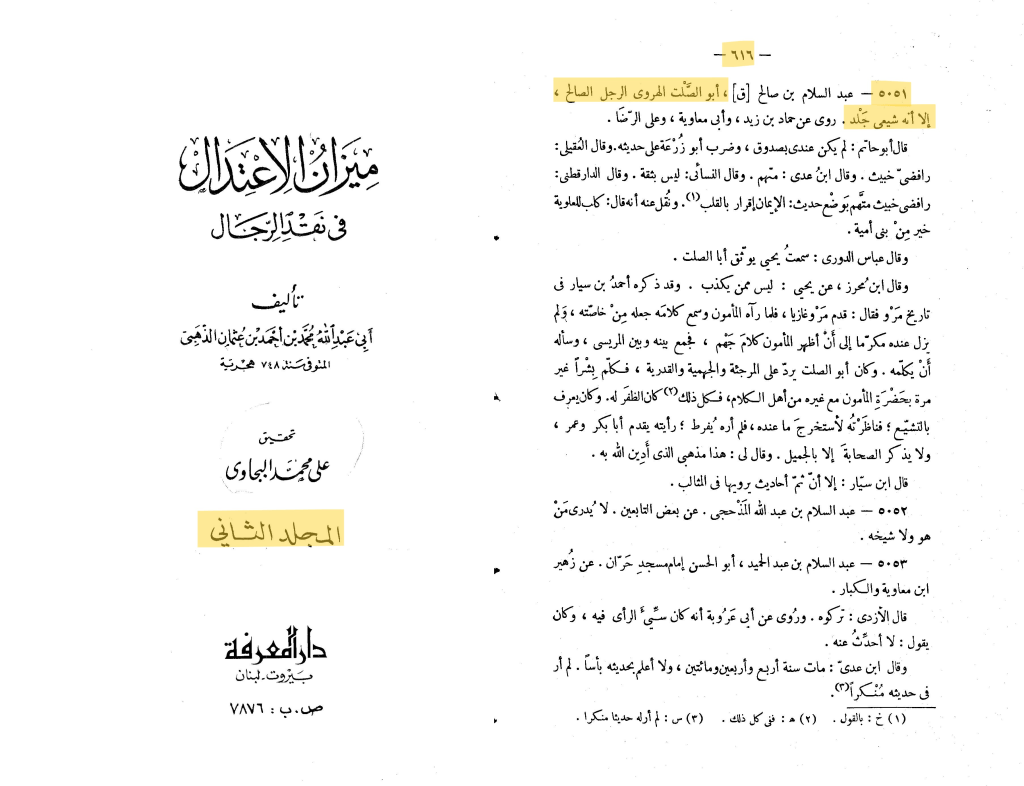 — ٦١٦ —
٥٠٥١ — عبد السلام بن صالح [ق] ، أبو الصَّلْت الهروى الرجل الصالح ،
إلا أنه شيعى جَلْد . روى عن حماد بن زيد ، وأبى معاوية ، وعلى الرّضَا .
قال أبو حاتم : لم يكن عندى بصدوق ، وضرب أبو زُرْعَة على حديثه . وقال العُقيلى :
رافضىّ خبيث . وقال ابنُ عدى : متّهم . وقال النسائى : ليس بثقة . وقال الدارقطنى :
رافضى خبيث متَّهم بَوضْع حديث : الإيمان إقرار بالقلب(١) . ونُقل عنه أنه قال : كلب للعلوية
خير مِنْ بنى أمية .
وقال عباس الدورى : سمعتُ يحيى يوثّق أبا الصلت .
وقال ابن مُحرز ، عن يحيى : ليس ممن يكذب . وقد ذكره أحمدُ بن سيار فى
تاريخ مَرْو فقال : قدم مَرْو غازيا ، فلما رآه المأمون وسمع كلامَه جعله مِنْ خاصّته ، وَلم
يزل عنده مكرّما إلى أَنْ أظهر المأمون كلامَ جَهْم ، فجمع بينه وبين المريسى ، وسأله
أَنْ يكلّمه . وكان أبو الصلت يردّ على المرجئة والجهمية والقدرية ، فكلّم بِشْراً غير
مرة بحَضْرَةِ المأمون مع غيره من أهل الكلام ، فكل ذلك(٢) كان الظفَر له . وكان يعرف
بالتشيّع ؛ فناظَرْتُه لأستخرجَ ما عنده ، فلم أره يُفرط ؛ رأيته يقدم أبا بكر وعمر ،
ولا يذكر الصحابةَ إلا بالجميل . وقال لى : هذا مذهبى الذى أَدِين الله به .
قال ابن سيّار : إلا أنّ ثمّ أحاديث يرويها فى المثالب .
٥٠٥٢ — عبد السلام بن عبد الله المَذْحجى . عن بعض التابعين . لا يُدرى مَنْ
هو ولا شيخه .
٥٠٥٣ — عبد السلام بن عبد الحميد ، أبو الحسن إمام مسجدِ حَرّان . عن زُهير
ابن معاوية والكبار .
قال الأزدى : تركوه . ورُوى عن أبى عَرُوبة أنه كان سيِّئَ الرأى فيه ، وكان
يقول : لا أحدِّثُ عنه .
وقال ابن عدىّ : مات سنة أربع وأربعين ومائتين ، ولا أعلم بحديثه بأسًا . لم أر
فى حديثه مُنْكراً(٣).
(١) خ : بالقول . (٢) ه : ففى كل ذلك . (٣) س : لم أر له حديثا منكرا .
مِيزَانُ الاِعْتِدَالِ
فى نَقْدِ الرِّجَال
تأليف
أبى عَبْدِ اللهِ مُحَمَّد بْن أَحْمَد بْن عُثْمَان الذَّهَبِىّ
المتوفى سَنَة ٧٤٨ هجرية
تحقيق
على محمَّد البجاوى
المجلد الثاني
دار المعرفة
بَيروت - لبنان
ص . ب : ٧٨٧٦